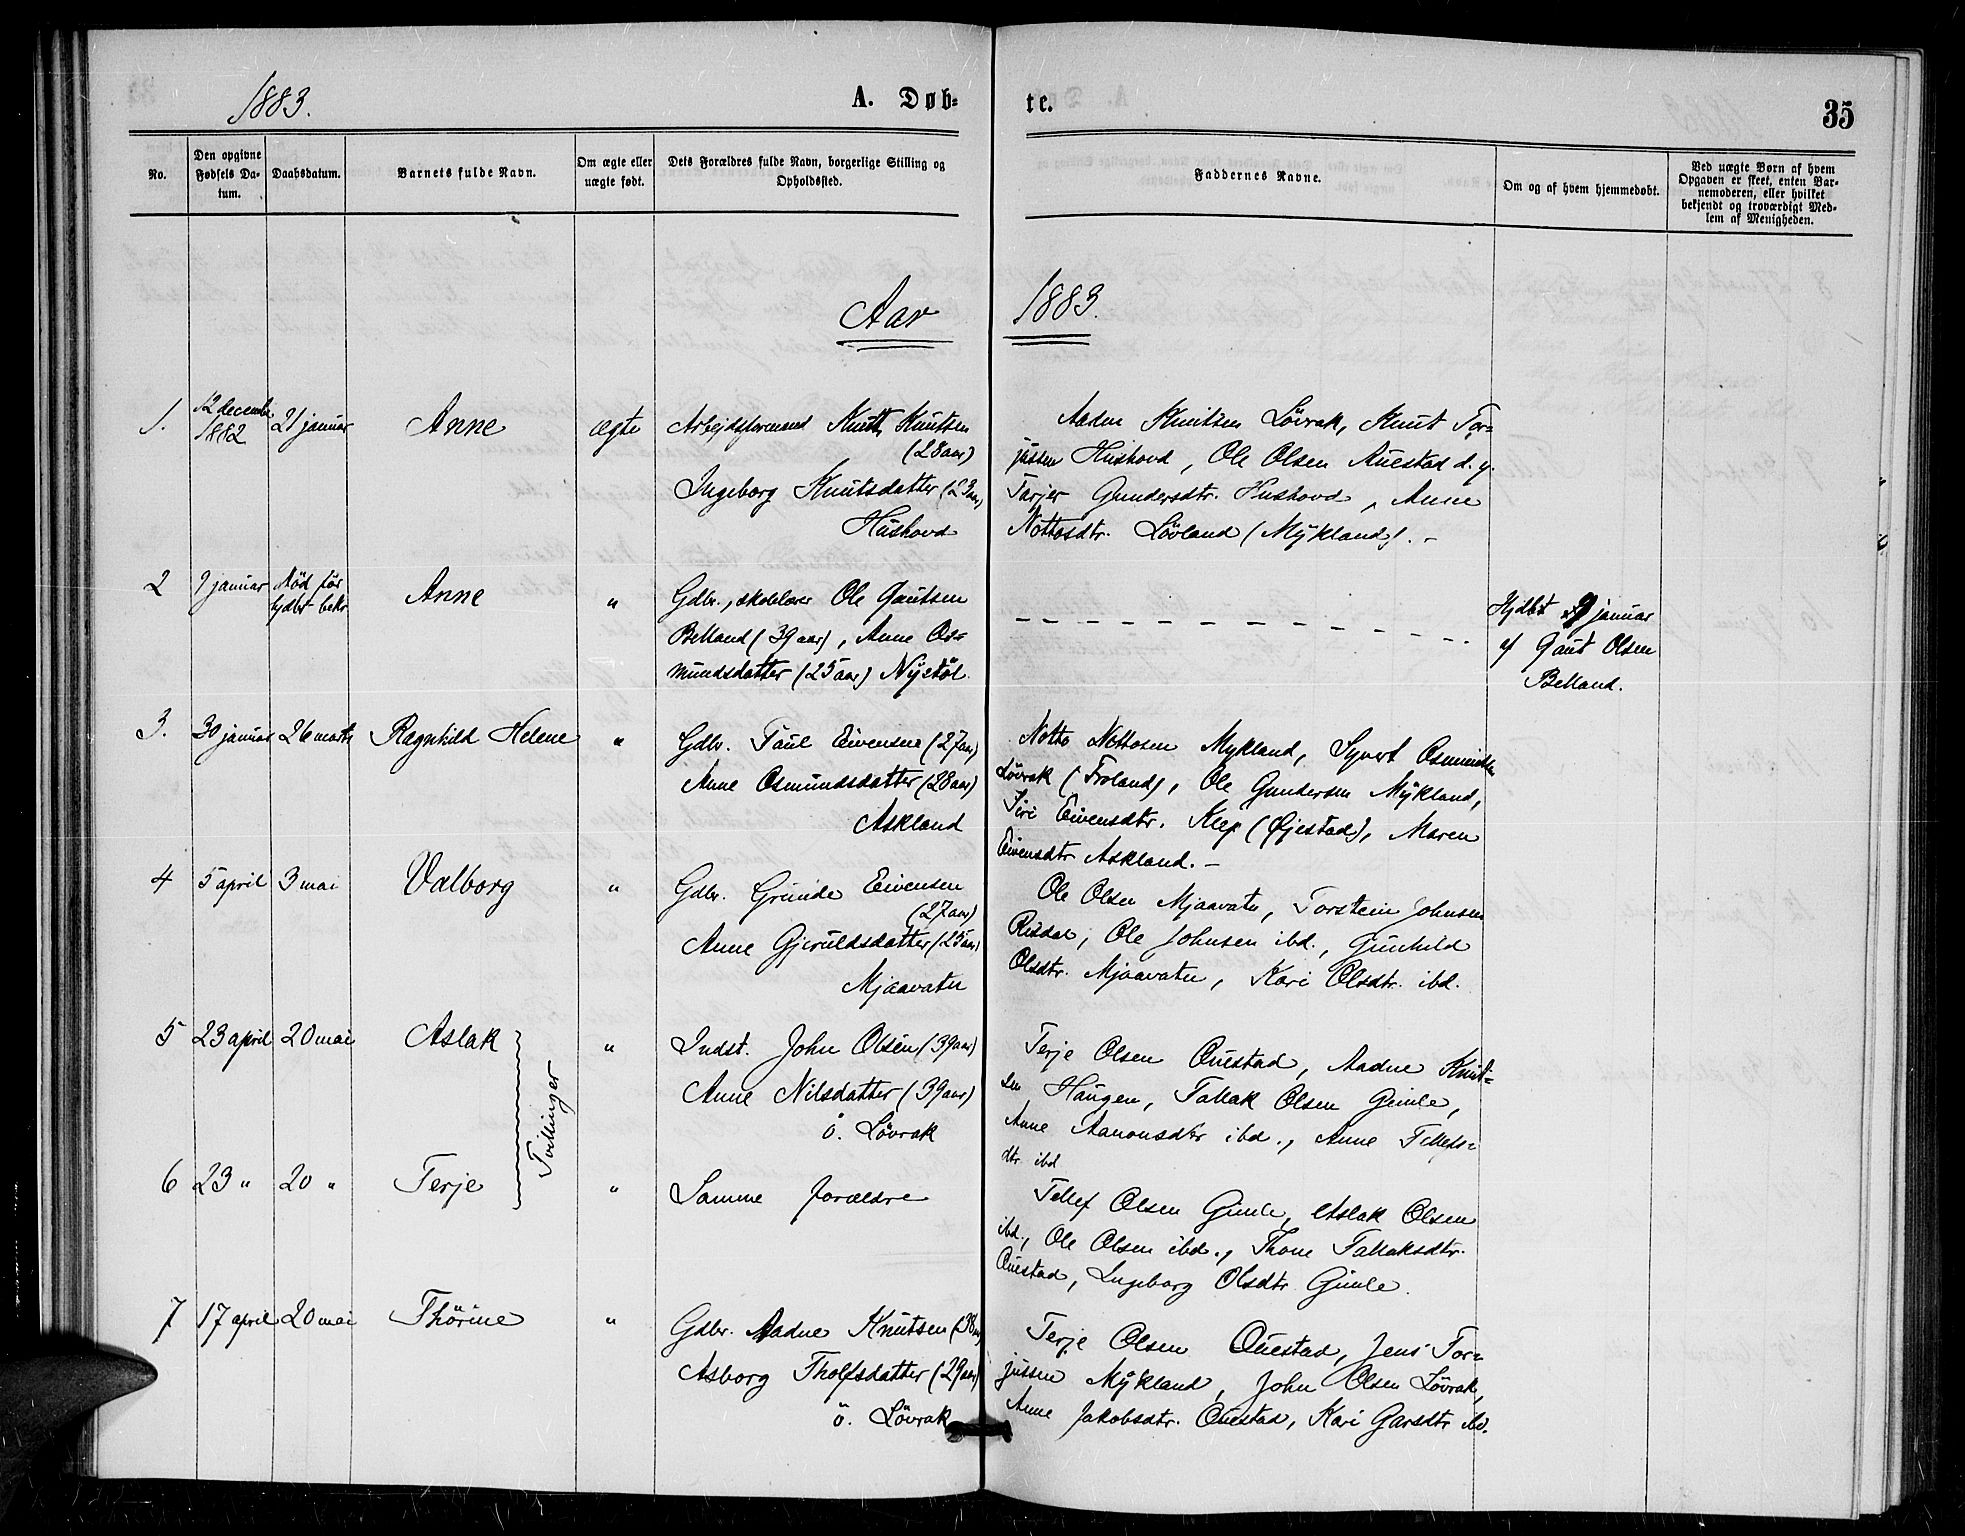 1883.
A. Døb-
te.
35
No.
Den opgivne Fødsels Da-
tum.
Daabsdatum.
Barnets fulde Navn.
Om ægte eller
uægte født.
Dets Forældres fulde Navn, borgerlige Stilling og
Opholdssted.
Faddernes Navne.
Om og af hvem hjemmedøbt.
Ved uægte Børn af hvem
Opgaven er skeet, enten Bar-
nemoderen, eller hvilket
bekjendt og troværdigt Med-
lem af Menigheden.
Aar 1883.
1. 12 decembr 1882 21 januar Anne ægte Arbejdsformand Knut Knutsen
(28 aar)
Ingeborg Knutsdatter (23 aar)
Hushovd
Aadne Knutsen Lövrak, Knut Tor-
jussen Hushovd, Ole Olsen Auestad d. y.
Tarjer Gundersdtr. Hushovd, Anne
Nottosdtr. Lövland (Mykland). -
2 9 januar död för hjdbt bekr. Anne " Gdbr., skolelærer Ole Gautsen
Belland (39 aar), Anne Os-
mundsdatter (25 aar) Nystöl.
Hjdbt 9 januar
af Gaut Olsen
Belland.
3. 30 januar 26 marts Ragnhild Helene " Gdbr. Paul Eivensen (27 aar)
Anne Osmundsdatter (28 aar)
Askland
Notto Nottosen Mykland, Syvert Osmundsen
Lövrak (Froland), Ole Gundersen Mykland,
Siri Eivensdtr. Klep (Øjestad), Maren
Eivensdtr Askland. -
4 5 april 3 mai Valborg " Gdbr. Gunde Eivensen
(27 aar)
Anne Gjeruldsdatter (25 aar)
Mjaavatn
Ole Olsen Mjaavatn, Torstein Johnsen
Risdal, Ole Johnsen ibd., Gunhild
Olsdtr. Mjaavatn, Kari Olsdtr. ibd.
5 23 april 20 mai Aslak " Indst. John Olsen (39 aar)
Anne Nilsdatter (39 aar)
ö. Lövrak
Tvillinger
Terje Olsen Ouestad, Aadne Knut-
sen Haugen, Tallak Olsen Gimle,
Anne Aanonsdtr ibd., Anne Tellefs-
dtr ibd
6 23 " 20 " Terje " Samme forældre
Tellef Olsen Gimle, Aslak Olsen
ibd., Ole Olsen ibd., Thone Tallaksdtr.
Ouestad, Ingeborg Olsdtr Gimle.
7 17 april 20 mai Thörine " Gdbr. Aadne Knutsen (38 aar)
Asborg Tholfsdatter (29 aar)
ö. Lövrak
Terje Olsen Ouestad, Jens Tor-
jussen Mykland, John Olsen Lövrak,
Anne Jakobsdtr. Ouestad, Kari Garsdtr ibd.